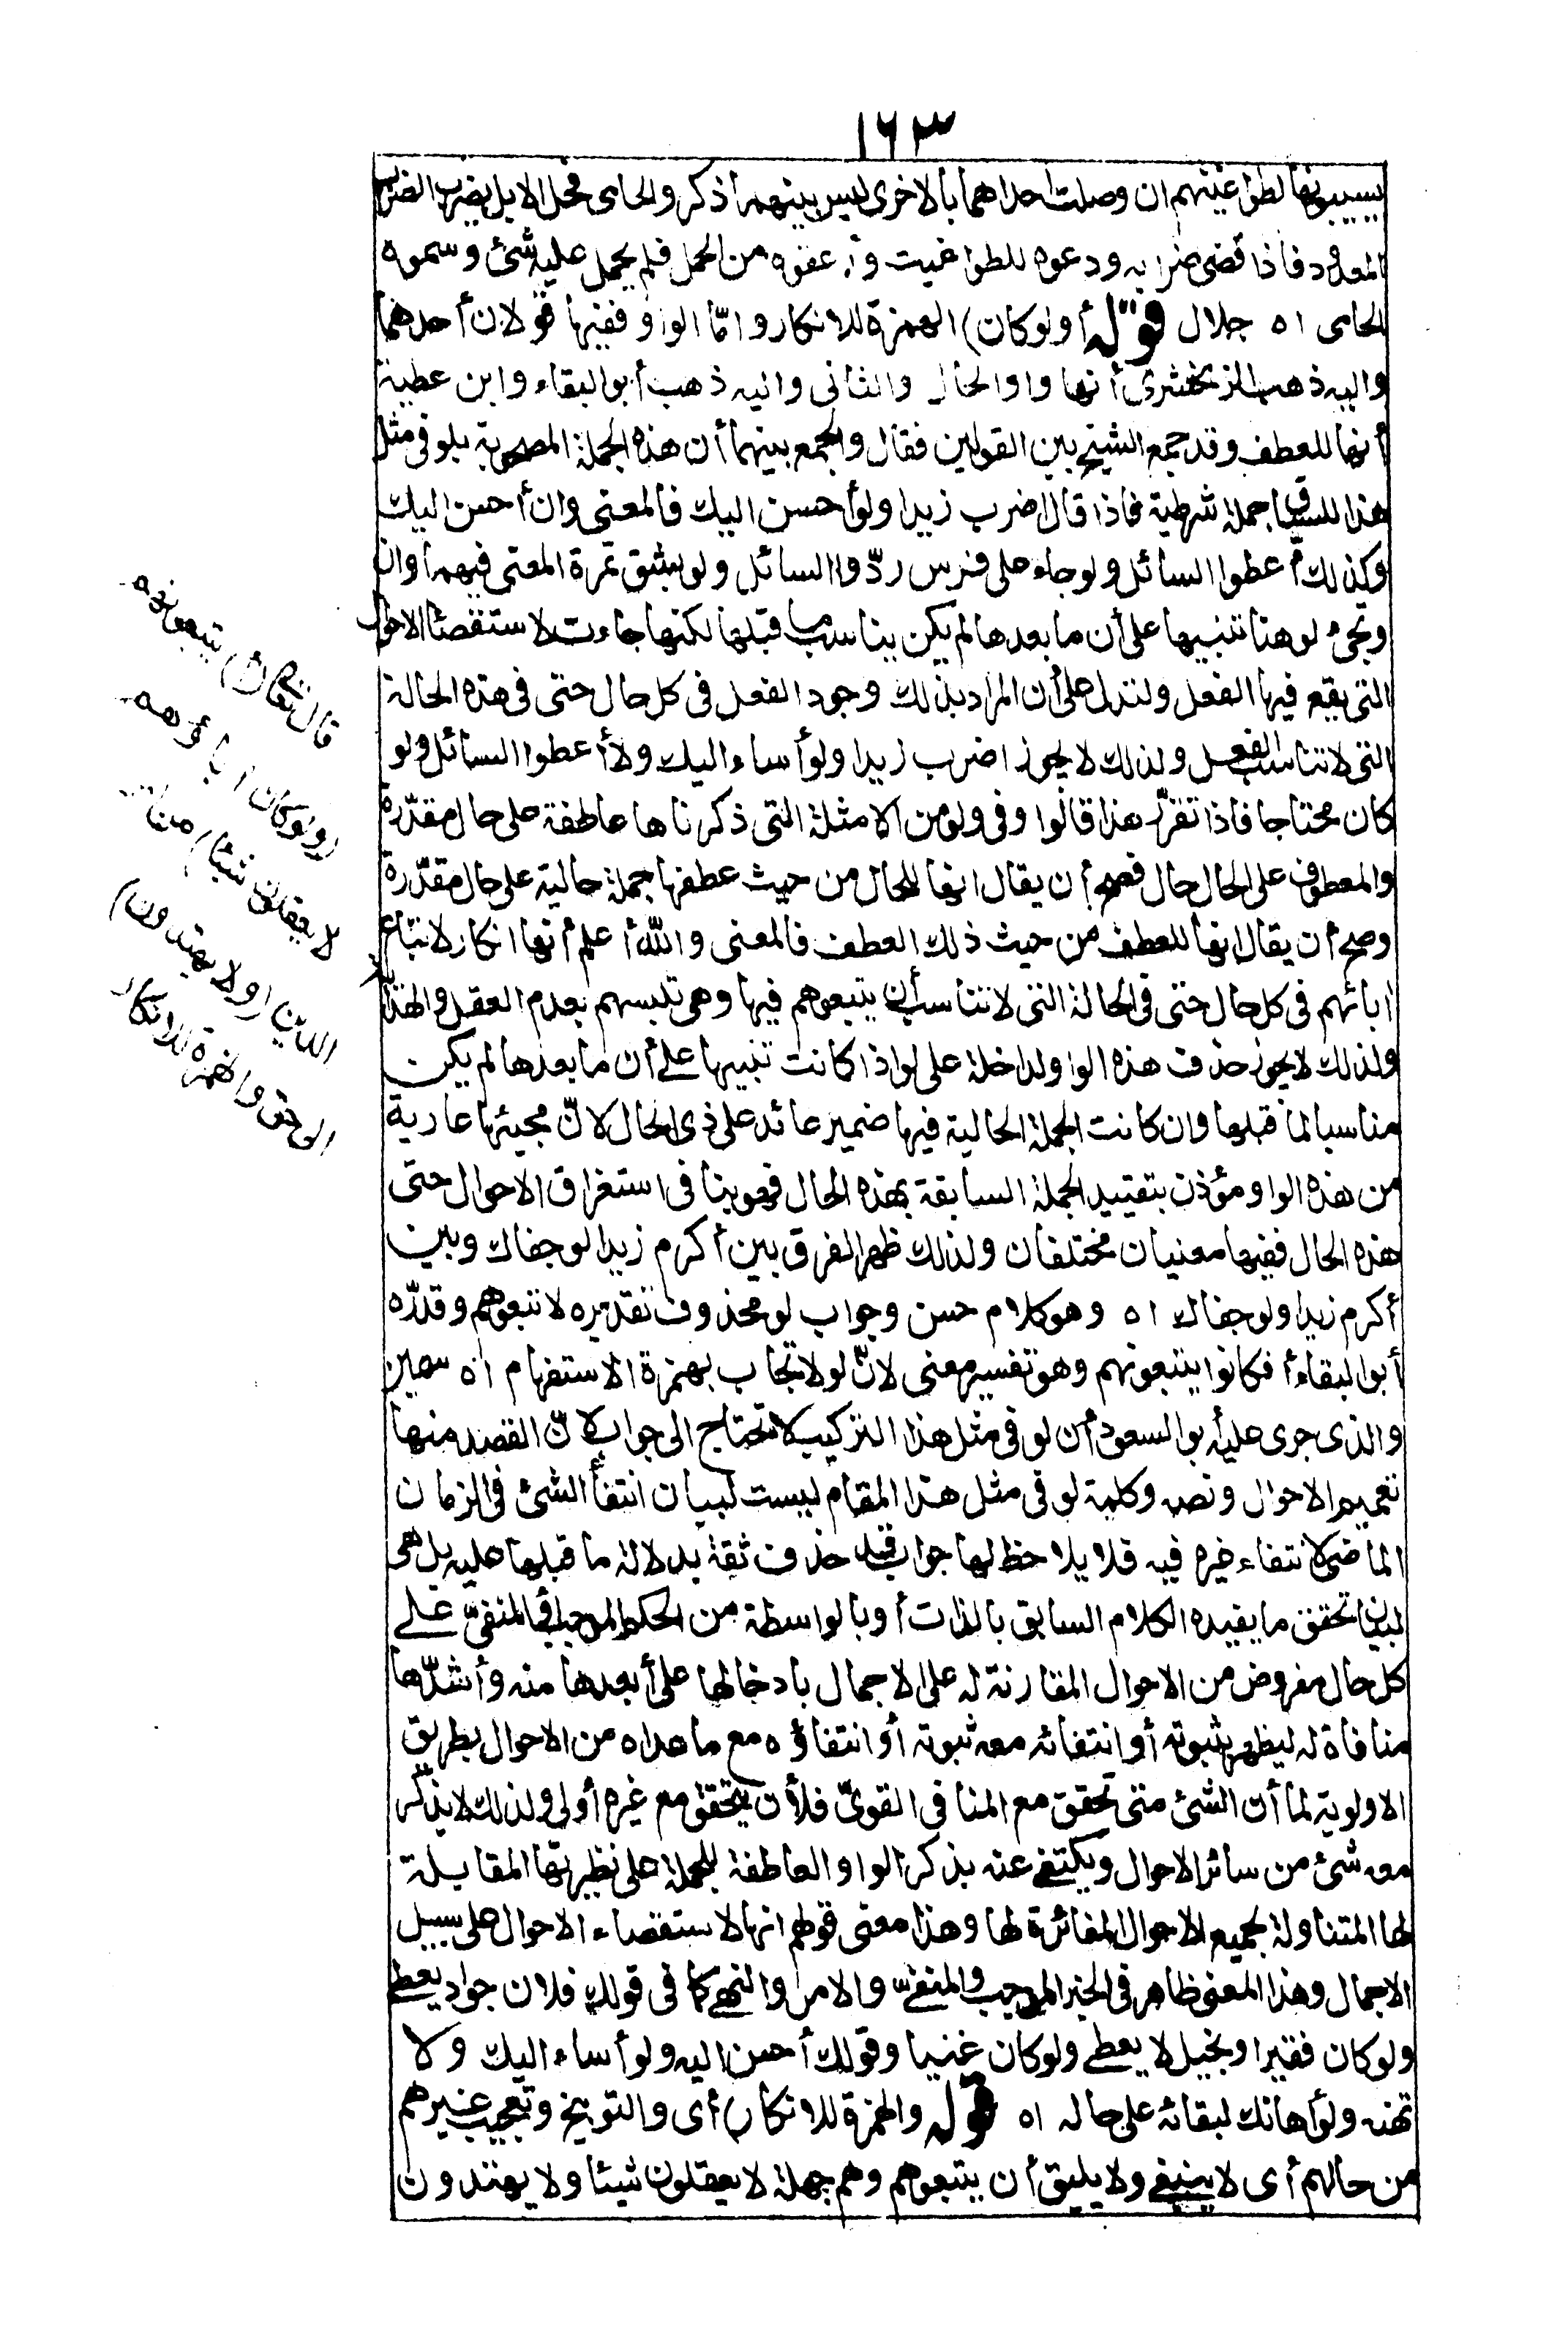 ١٦٣
يسيبونها لطواغيتهم ان وصلت احداهما بالاخرى ليس بينهما ذكر والحامى فحل الابل يضرب الضراب
المعدود فاذا قضى ضرابه ودعوه للطواغيت وأعفوه من الحمل فلم يحمل عليه شئ وسموه
الحامى اه جلال قوله (أولوكان) الهمزة للانكار وامّا الواو ففيها قولان أحدهما
واليه ذهب الزمخشرى أنها واو الحال والثانى واليه ذهب أبو البقاء وابن عطية
أنها للعطف وقد جمع الشيخ بين القولين فقال والجمع بينهما أن هذه الجملة المصحوبة بلو فى مثل
هذا السياق جملة شرطية فاذا قال اضرب زيدا ولو أحسن اليك فالمعنى وان أحسن اليك
وكذلك أعطوا السائل ولو جاء على فرس ردّوا السائل ولو بشق تمرة المعنى فيهما وان
وتجئ لو هنا تنبيها على أن ما بعدها لم يكن يناسب ما قبلها لكنها جاءت لاستقصاء الاحوال
التى يقع فيها الفعل ولتدل على أن المراد بذلك وجود الفعل فى كل حال حتى فى هذه الحالة
التى لا تناسب الفعل ولذلك لا يجوز اضرب زيدا ولو أساء اليك ولا أعطوا السائل ولو
كان محتاجا فاذا تقرّر هذا قالوا وفى ولو من الامثلة التى ذكرناها عاطفة على حال مقدّرة
والمعطوف على الحال حال فصح أن يقال انها للحال من حيث عطفها جملة حالية على حال مقدّرة
وصح أن يقال انها للعطف من حيث ذلك العطف فالمعنى والله أعلم أنها انكار لاتباع
آبائهم فى كل حال حتى فى الحالة التى لا تناسب أن يتبعوهم فيها وهى تلبسهم بعدم العقل والهداية
ولذلك لا يجوز حذف هذه الواو الداخلة على لو اذا كانت تنبيها على أن ما بعدها لم يكن
مناسبا لما قبلها وان كانت الجملة الحالية فيها ضمير عائد على ذى الحال لانّ مجيئها عارية
من هذه الواو مؤذن بتقييد الجملة السابقة بهذه الحال فهو ينافى استغراق الاحوال حتى
هذه الحال ففيها معنيان مختلفان ولذلك ظهر الفرق بين أكرم زيدا لو جفاك وبين
أكرم زيدا ولو جفاك اه وهو كلام حسن وجواب لو محذوف تقديره لاتبعوهم وقدّره
أبو البقاء أفكانوا يتبعونهم وهو تفسير معنى لانّ لو لا تجاب بهمزة الاستفهام اه سمين
والذى جرى عليه أبو السعود أن لو فى مثل هذا التركيب لا تحتاج الى جواب لانّ القصد منها
تعميم الاحوال ونصه وكلمة لو فى مثل هذا المقام ليست لبيان انتفاء الشئ فى الزمان
الماضى لانتفاء غيره فيه فلا يلاحظ لها جواب قد حذف ثقة بدلالة ما قبلها عليه بل هى
لبيان تحقق ما يفيده الكلام السابق بالذات أو بالواسطة من الحكم الموجب أو المنفىّ على
كل حال مفروض من الاحوال المقارنة له على الاجمال بادخالها على أبعدها منه وأشدّها
منافاة له ليظهر بثبوته أو انتفائه معه ثبوته أو انتفاؤه مع ما عداه من الاحوال بطريق
الاولوية لما أن الشئ متى تحقق مع المنافى القوىّ فلأن يتحقق مع غيره أولى ولذلك لا يذكر
معه شئ من سائر الاحوال ويكتفى عنه بذكر الواو العاطفة للجملة على نظيرتها المقابلة
لها المتناولة لجميع الاحوال المغائرة لها وهذا معنى قولهم انها لاستقصاء الاحوال على سبيل
الاجمال وهذا المعنى ظاهر فى الخبر الموجب والمنفىّ والامر والنهى كما فى قولك فلان جواد يعطى
ولو كان فقيرا وبخيل لا يعطى ولو كان غنيا وقولك أحسن اليه ولو أساء اليك ولا
تهنه ولو أهانك لبقائه على حاله اه قوله والهمزة للانكار) أى والتوبيخ وتعجيب غيرهم
من حالهم أى لا ينبغى ولا يليق أن يتبعوهم وهم جهلة لا يعقلون شيئا ولا يهتدون
قال تعالى (أ) يتبعونهم
(ولوكان آباؤهم
لا يعقلون شيئا) من أمر
الدين (ولا يهتدون)
الى حق والهمزة للانكار